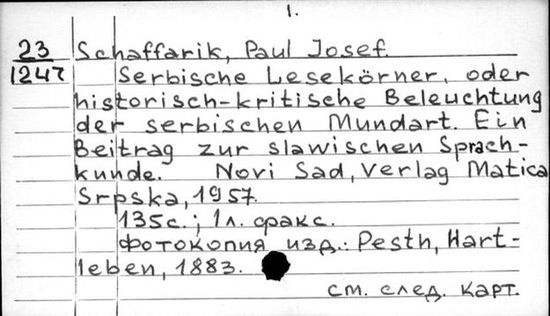 1.
23 Schaffarik, Paul Josef.
1247 Serbische Lesekörner, oder
historisch-kritische Beleuchtung
der serbischen Mundart. Ein
Beitrag zur slawischen Sprach-
kunde. Novi Sad, Verlag Matica
Srpska, 1957.
135с.; 1л. факс.
Фотокопия изд.: Pesth, Hart-
leben, 1883.
см. след. карт.